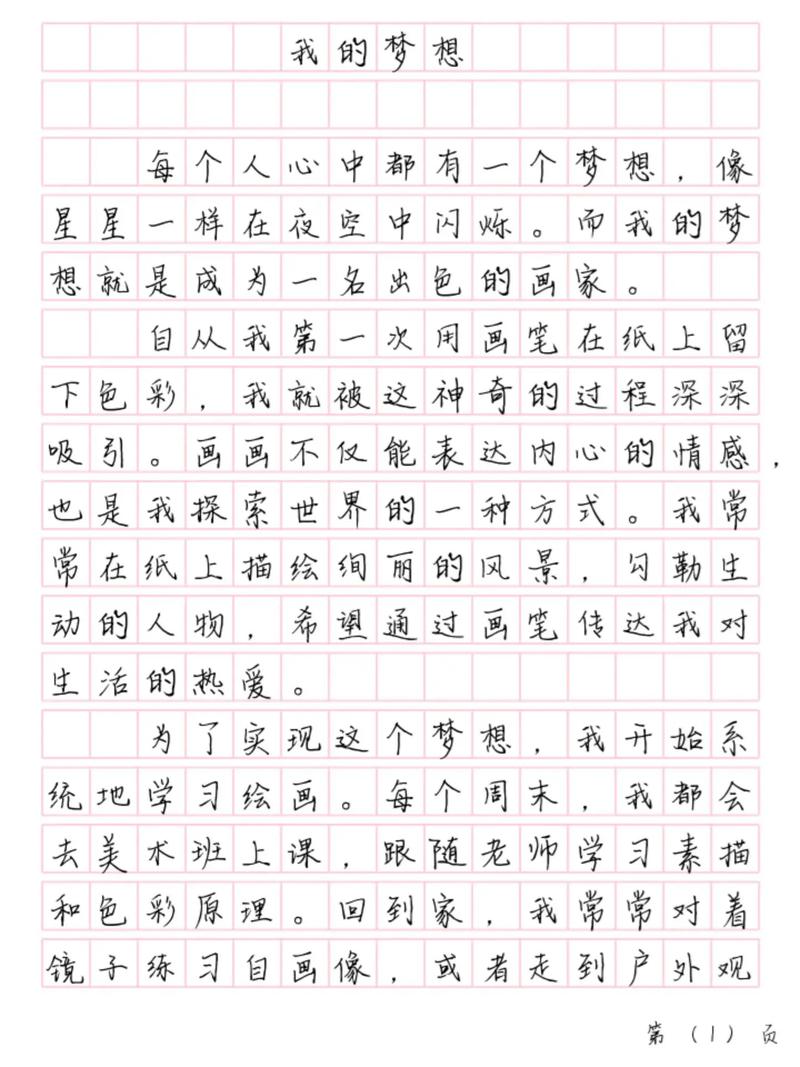 我的梦想
每个人心中都有一个梦想，像
星星一样在夜空中闪烁。而我的梦
想就是成为一名出色的画家。
自从我第一次用画笔在纸上留
下色彩，我就被这神奇的过程深深
吸引。画画不仅能表达内心的情感，
也是我探索世界的一种方式。我常
常在纸上描绘绚丽的风景，勾勒生
动的人物，希望通过画笔传达我对
生活的热爱。
为了实现这个梦想，我开始系
统地学习绘画。每个周末，我都会
去美术班上课，跟随老师学习素描
和色彩原理。回到家，我常常对着
镜子练习自画像，或者走到户外观
第（1）页